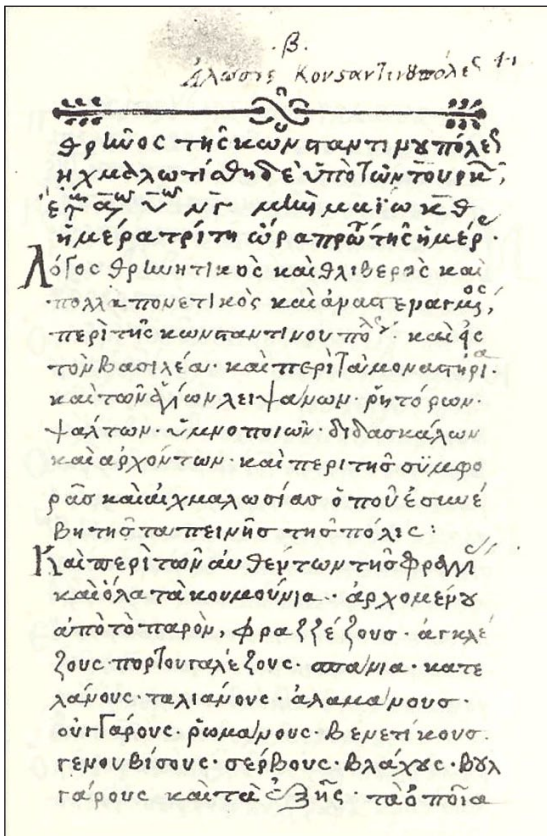 .β.
Ἅλωσις Κονσαντινȣπόλες
θρῆνος τῆς κωνσταντινȣπόλεσ
ἠχμαλωτίσθη δὲ ὑπὸ τῶν τουρκ
μηνὶ μαΐω κθ
ἡμέρα τρίτη ὥρα πρώτη τῆς ἡμέρ.
Λόγος θρηνητικὸς καὶ θλιβερὸς καὶ
πολλὰ πονετικὸς καὶ ἀναστεναγμός,
περὶ τῆς κωνσταντίνου πόλ. καὶ εἰς
τὸν βασιλέαν. καὶ περὶ τὰ μοναστήρια.
καὶ τῶν ἁγίων λειψάνων. ῥητόρων.
ψαλτῶν. ὑμνοποιῶν. διδασκάλων
καὶ ἀρχόντων. καὶ περὶ τῆς συμφο
ρᾶς καὶ αἰχμαλωσίας ὁποῦ ἐσυνέ
βη τῆς ταπεινῆς τῆς πόλις:
Καὶ περὶ τῶν αὐθέντων τῆς φραγγί
καὶ ὅλα τὰ κουμούνια. ἀρχομένȣ
ἀπὸ τὸ παρὸν, φραντζέζους. ἀγκλέ
ζους. πορτουγαλέζους. σπάνια. κατε
λάνους. ταλιάνους. ἀλαμάνους.
οὐγγάρους. ῥωμάνους. βενετίκους.
γενουβίσους. σέρβους. βλάχȣς. βουλ
γάρους καὶ τὰ ἑξῆς. τὰ ὁποῖα